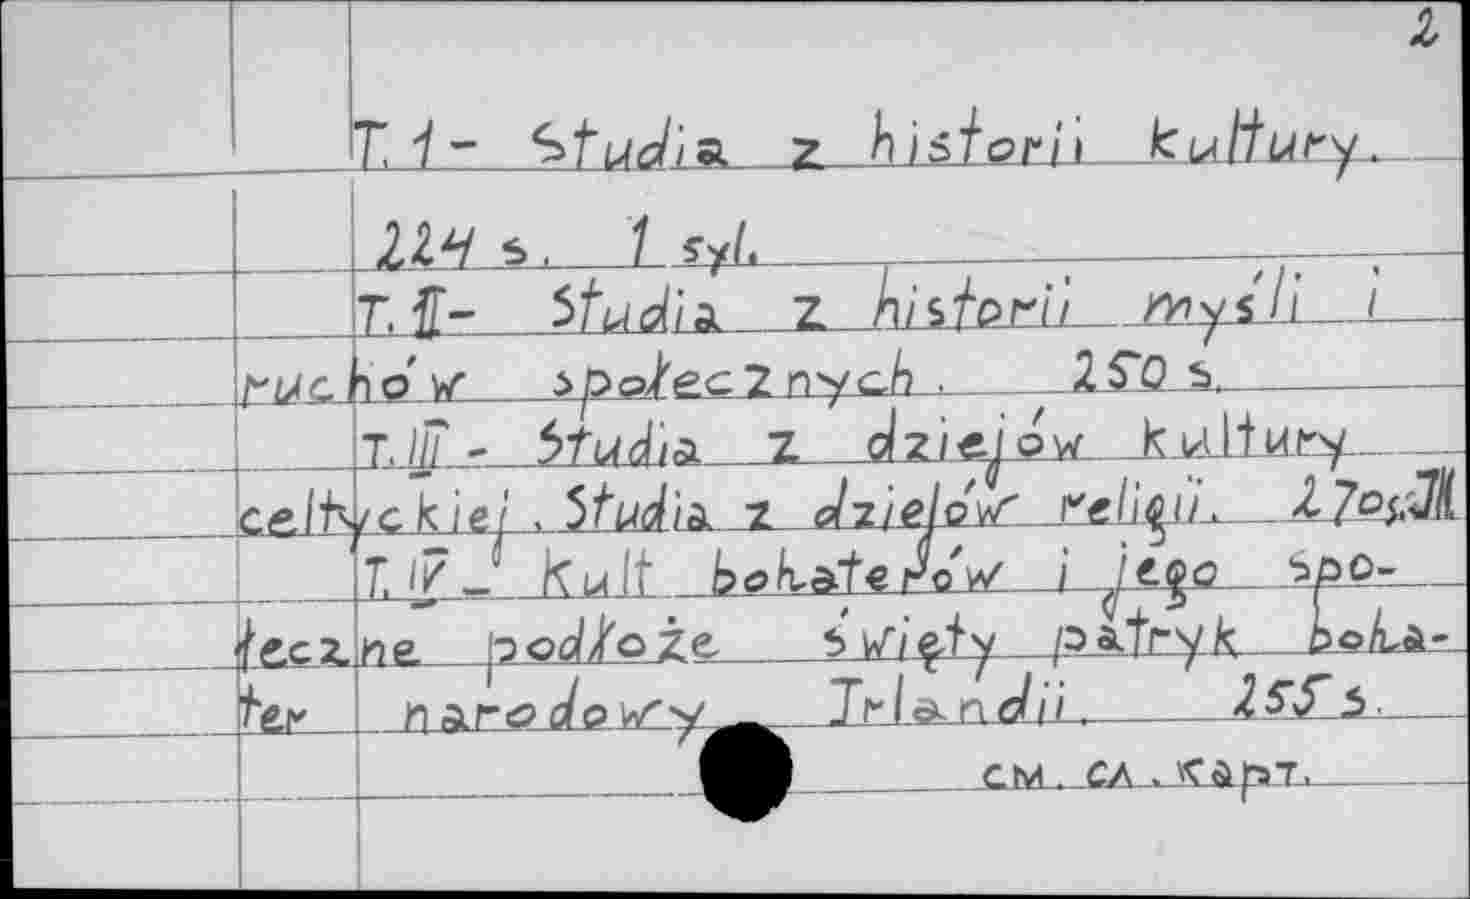 2
T. 1- Studia z historii kultury.
224 s. 1 syl.
T. II- Studia z historii myśli i
ruchów społecznych. 250 s.
T. III - Studia z dziejów kultury
celtyckiej. Studia z dziejów religii. 270s.
T. IV - Kult bohaterów i jego spo-
łeczne podłoże święty patryk boha-
ter narodowy Irlandii. 255 s.
см. сл. карт.